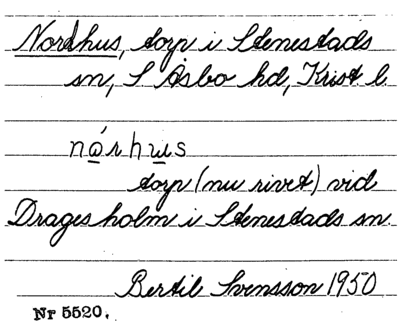 Nordhus, torp i Stenestads
sn, S Åsbo hd, Krist l.
nórhus
torp (nu rivet) vid
Dragesholm i Stenestads sn.
Bertil Svensson 1950
Nr 5520.